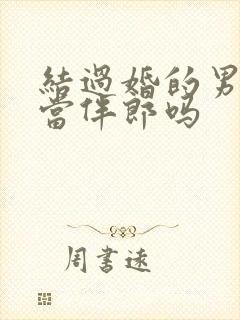 結過婚的男
當伴郎嗎
周書遠